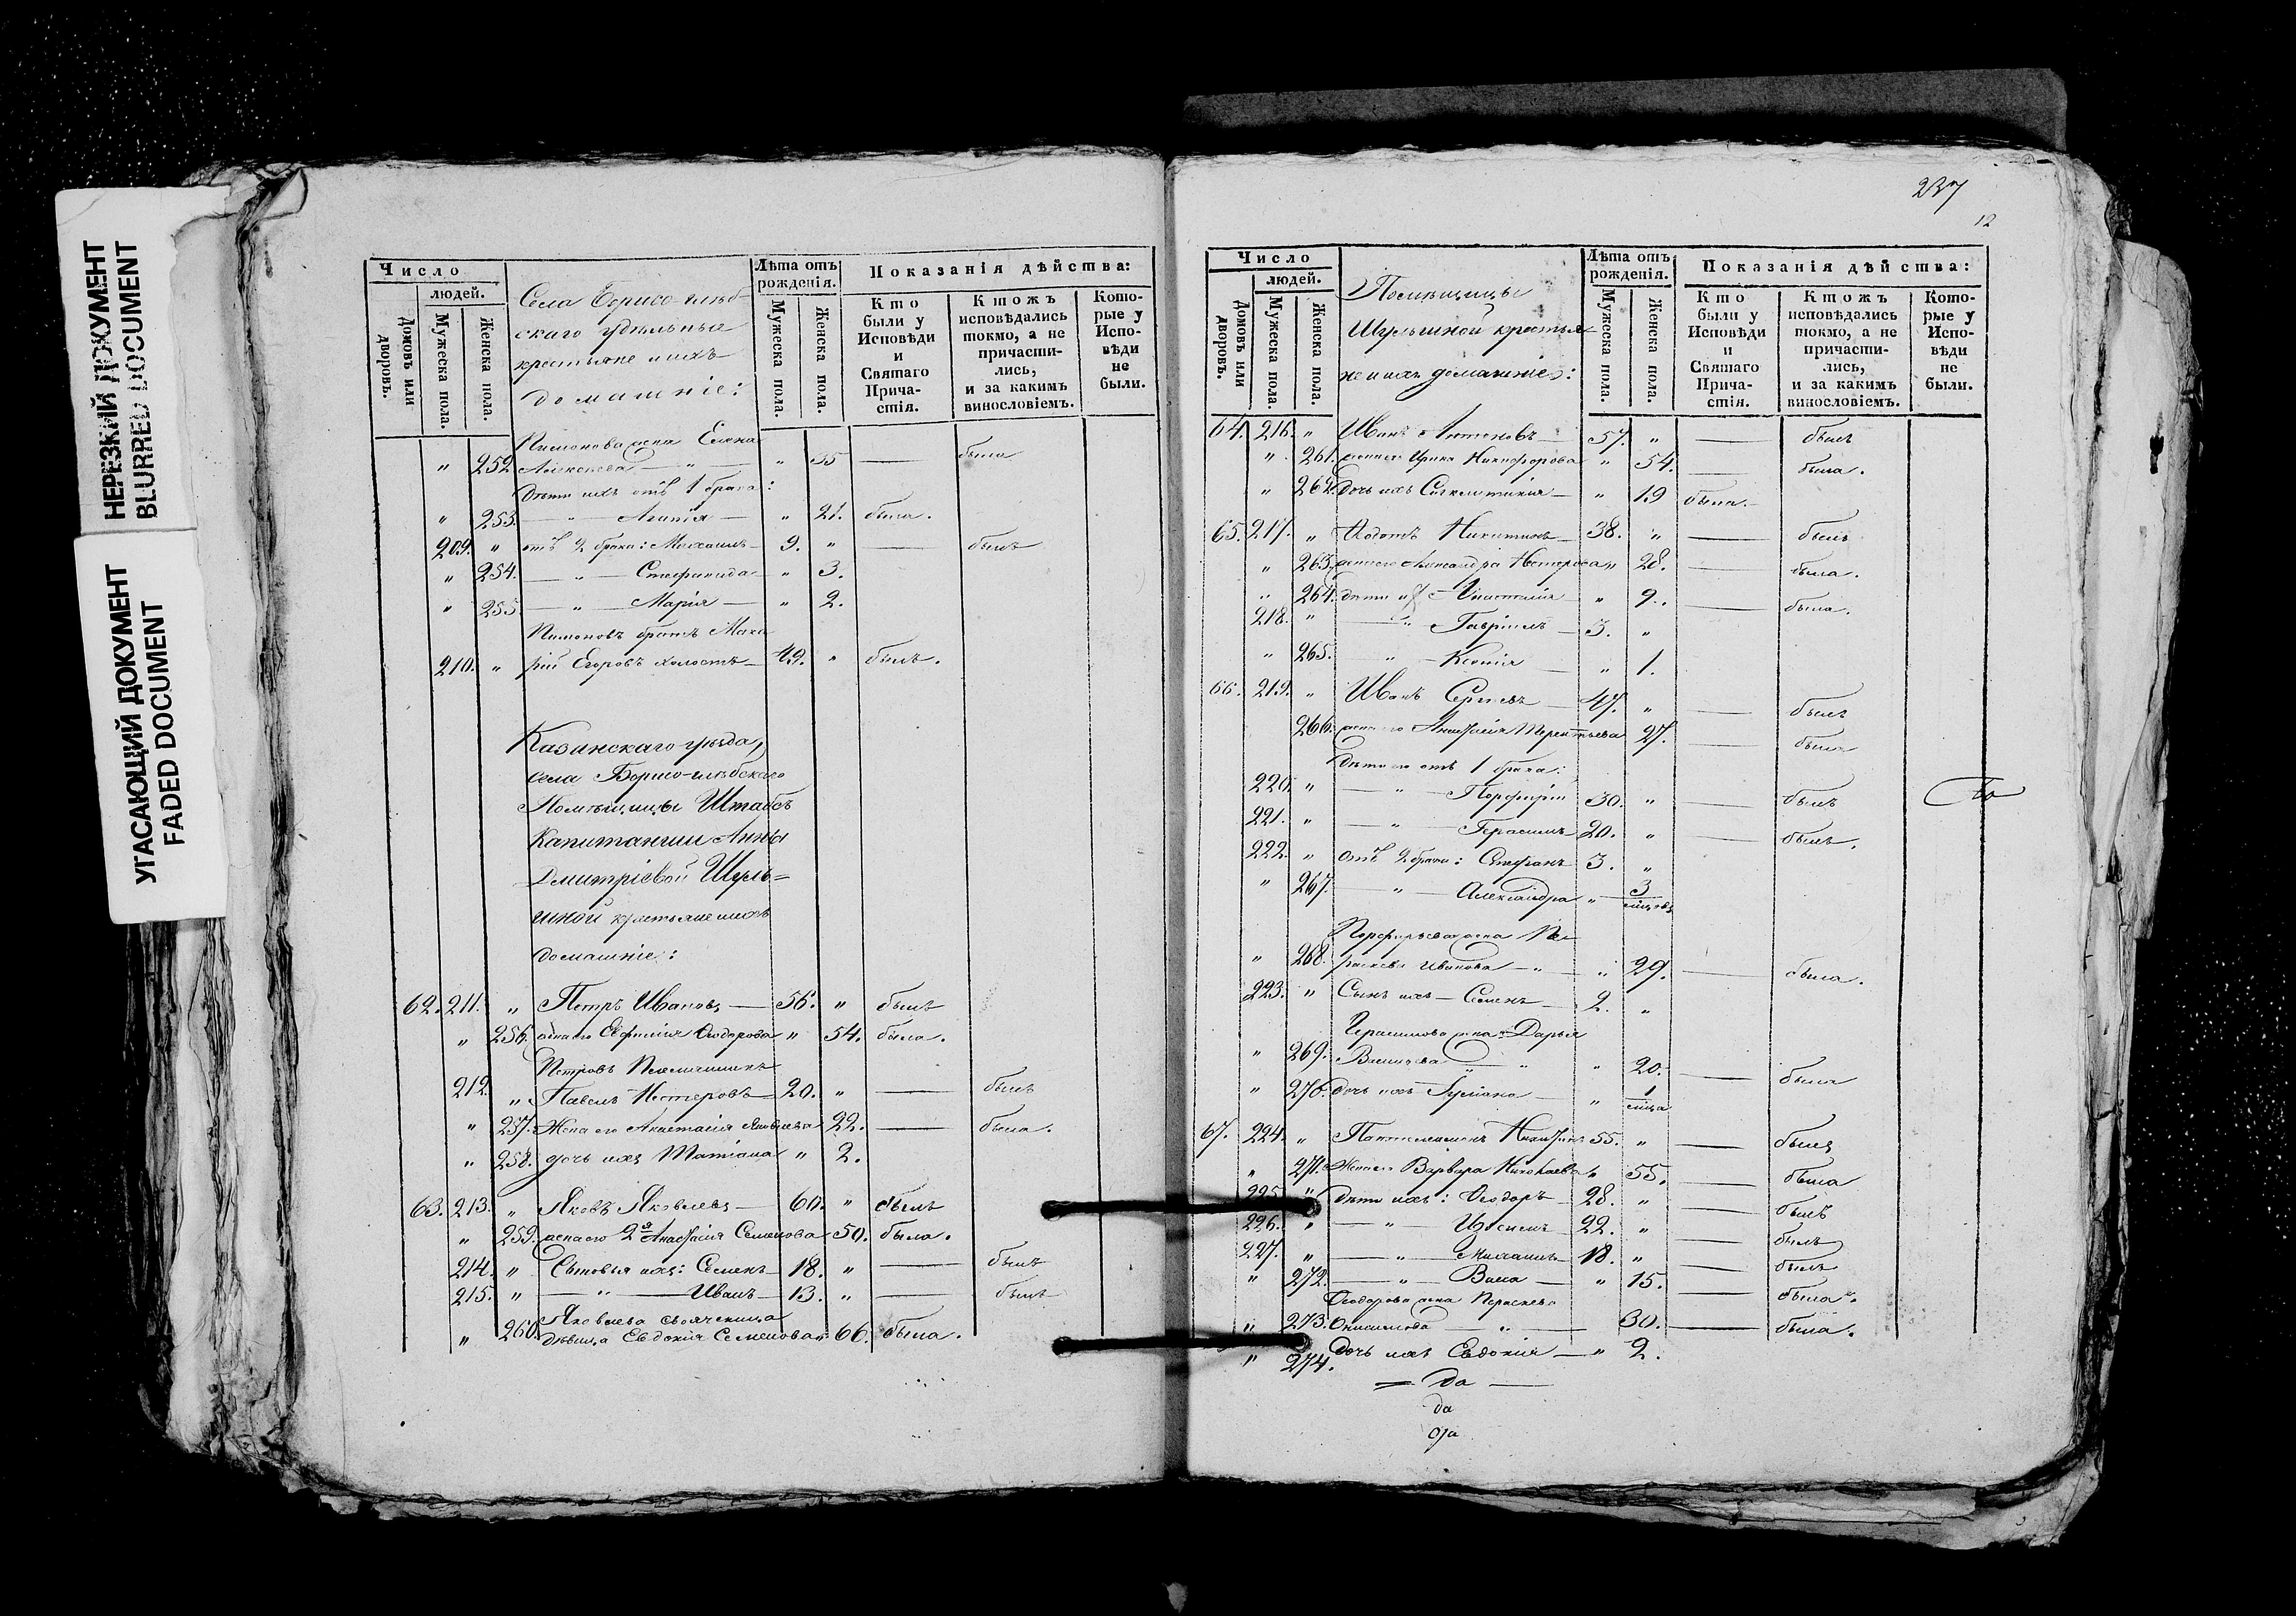 НЕРЕЗКИЙ ДОКУМЕНТ
BLURRED DOCUMENT
УГАСАЮЩИЙ ДОКУМЕНТ
FADED DOCUMENT
Число
людей.
Домовъ или дворовъ.
Мужеска пола.
Женска пола.
Села Борисо-глѣб-
скаго удѣльные
крестьяне и ихъ
домашніе:
Лѣта отъ рожденія.
Мужеска пола.
Женска пола.
Показанія дѣйства:
Кто были у Исповѣди и Святаго Прича-стія.
Ктожъ исповѣдались токмо, а не причасти-лись, и за какимъ винословіемъ.
Кото-рые у Испо-вѣди не были.
Пимонова жена Елена
" 252. Алексеева — " — " 35 — была
Дѣти ихъ отъ 1 брака:
" 253. — " — Агапія — " 21. была.
209. " отъ 2 брака: Михаилъ — 9. " — былъ
" 254. — " — Стефанида — " 3.
" 255 — " — Марія — " 2.
Пимоновъ братъ Мака
210. " рій Егоровъ холостъ — 49. " былъ.
Казанскаго уѣзда,
села Борисо-глѣбскаго
Помѣщицы Штабсъ
Капитанши Анны
Дмитріевой Шуль-
гиной крестьяне и ихъ
домашніе:
62. 211. " Петръ Ивановъ — 56. " былъ
" 256. жена его Евфимія Ѳеодорова " 54. была.
Петровъ Племянникъ
212. " Павелъ Нестеровъ — 20. " — былъ
" 257. Жена его Анастасія Яковлева 22. — была.
" 258. дочь ихъ Татіана " 2.
63. 213. " Яковъ Яковлевъ — 60. " былъ
" 259. жена его 2я Анастасія Семенова 50. была.
214. " Сыновья ихъ: Семенъ — 18. " — былъ
215. " — " — Иванъ — 13. " — былъ
Яковлева свояченица
" 260. дѣвица Евдокія Семенова " 66. была.
237
12
Число
людей.
Домовъ или дворовъ.
Мужеска пола.
Женска пола.
Помѣщицы
Шульгиной крестья-
не и ихъ домашніе:
Лѣта отъ рожденія.
Мужеска пола.
Женска пола.
Показанія дѣйства:
Кто были у Исповѣди и Святаго Прича-стія.
Ктожъ исповѣдались токмо, а не причасти-лись, и за какимъ винословіемъ.
Кото-рые у Испо-вѣди не были.
64. 216. " Иванъ Антоновъ — 57. " — былъ
" 261. жена его Ирина Никифорова " 54. — была.
" 262. Дочь ихъ Сигклитикія — " 19 была.
65. 217. " Ѳедотъ Никитинъ — 38. " — былъ
" 263. жена его Александра Нестерова " 28. — была.
" 264. дѣти ихъ Анастасія " 9. — была.
218. " — " Гавріилъ — 3. "
" 265. — " — Ксенія — " 1.
66. 219. " Иванъ Сергѣевъ — 47. " — былъ
266. жена его Анастасія Терентьева 27. — была
Дѣти его отъ 1 брака:
220. " — " — Порфирій 30. " — былъ
221. " — " — Герасимъ 20. " — былъ.
222. " отъ 2 брака: Стефанъ 3. "
" 267. — " — Александра " 3 мѣсяца
Порфирьева жена Па
" 268. раскева Иванова — " — " 29. — была.
223. " Сынъ ихъ — Семенъ — 2. "
Герасимова жена Дарья
" 269. Васильева " " 20. — была
" 270. Дочь ихъ Іуліана — " 1 мѣсяца
67. 224. " Пантелеимонъ Никитинъ 55. " — былъ
" 271. Жена его Варвара Николаева " 55. — была
225. " Дѣти ихъ: Ѳеодоръ — 28. " — былъ
226. " — " — 22. " — былъ
227. " — " — Михаилъ — 18. " — былъ
" 272. — " — Васса — " 15. — была.
Ѳеодорова жена Параскева
" 273. Онисимова — " — 30. — была.
" 274. Дочь ихъ Евдокія — " 2.
= Да —
да